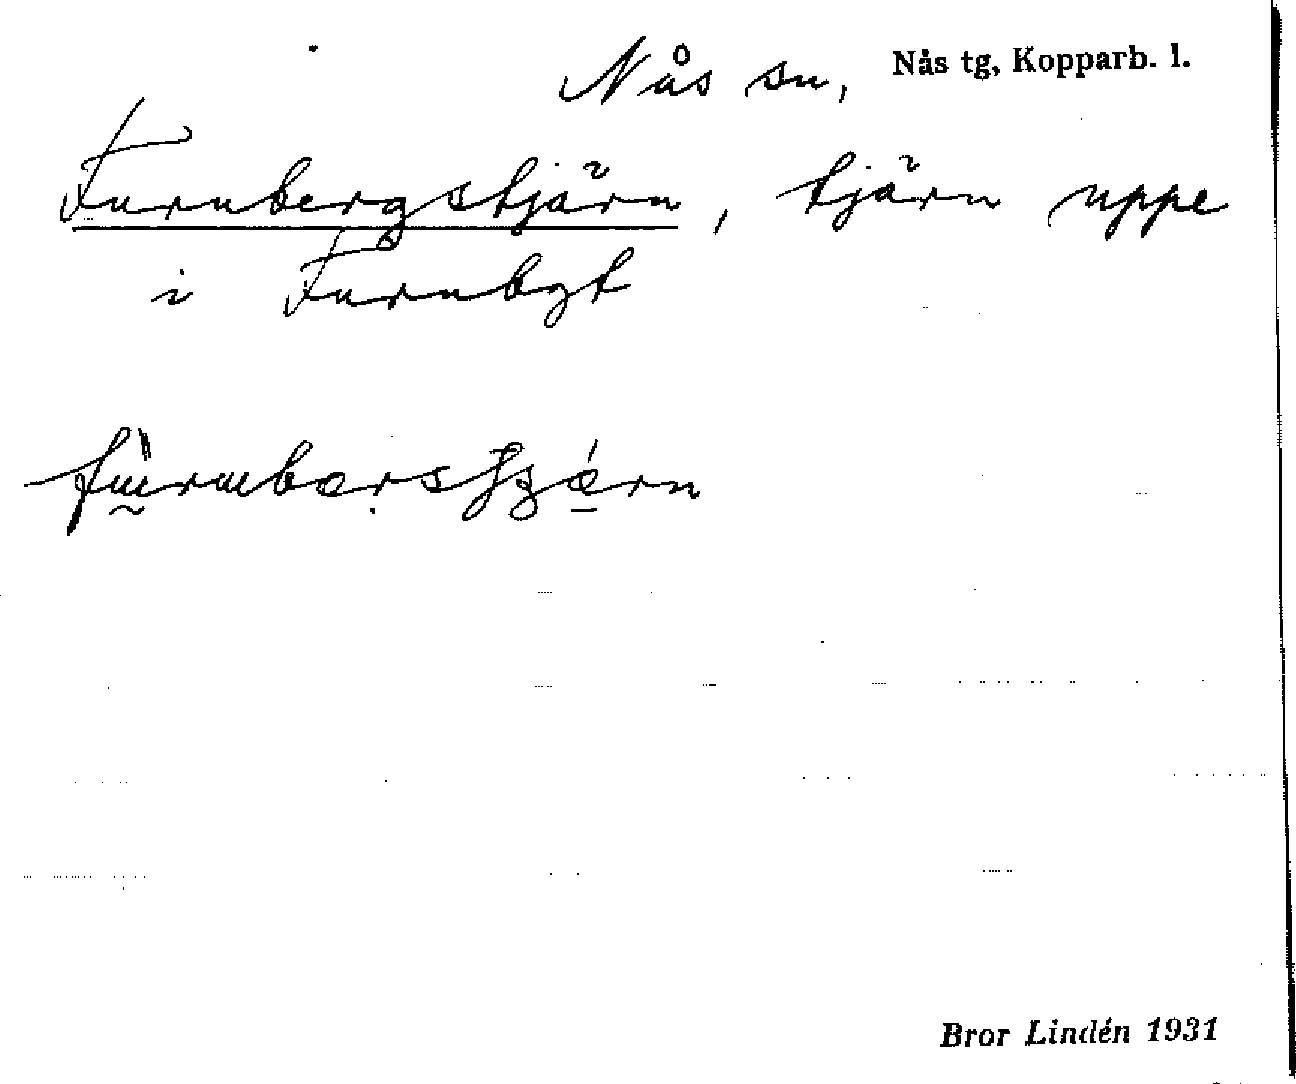 Nås sn, Nås tg, Kopparb. l.
Furubergstjärn, tjärn uppe
i Furubgt
Bror Lindén 1931